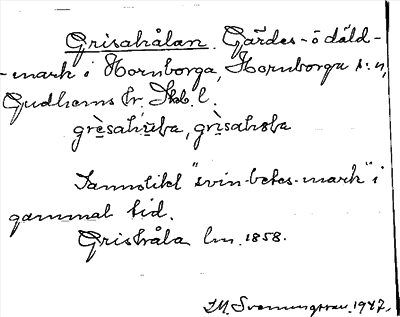 Grisahålan. Gärdes- o däld-
-mark i Hornborga, Hornborga s:n,
Gudhems hr. Skb. l.
grèsahù̵ba, grìsahoba
Sannolikt "svin-betes-mark" i
gammal tid.
Grishåla lm. 1858.
I.M. 1947.